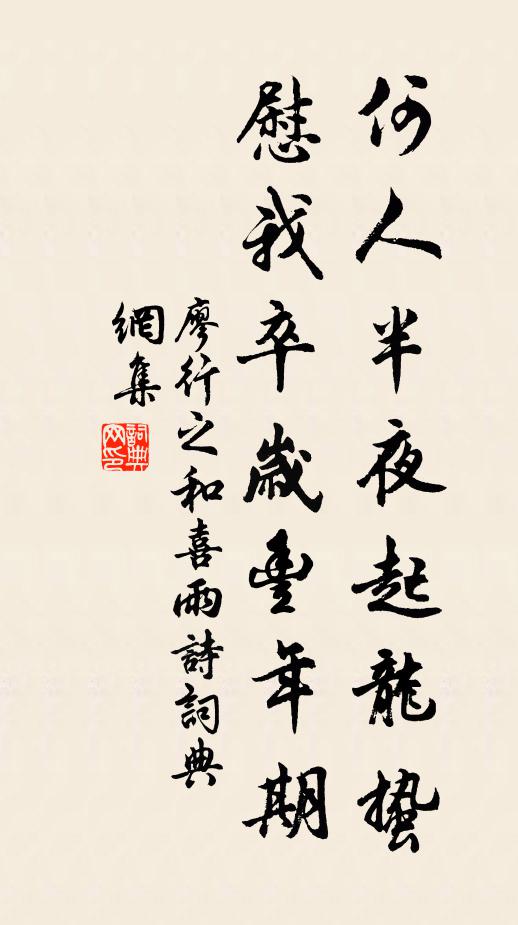 何人半夜起龍蟄
慰我卒歲豐年期
廖行之和喜雨詩詞典
網集
詞典
网印